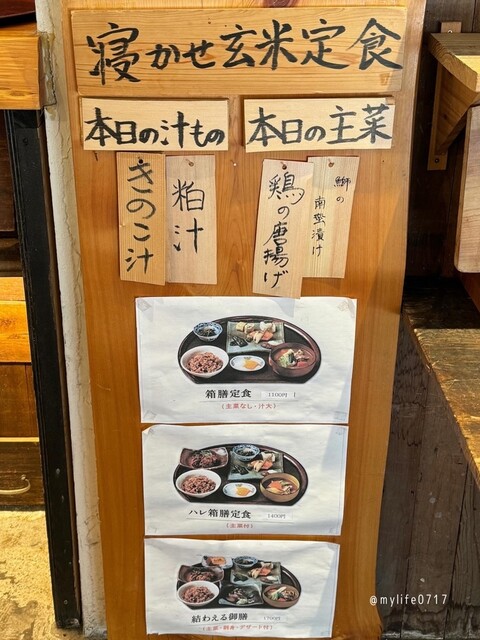 寝かせ玄米定食
本日の汁もの
本日の主菜
きのこ汁
粕汁
鶏の唐揚げ
鰤の南蛮漬け
箱膳定食 1100円
(主菜なし・汁大)
ハレ箱膳定食 1400円
(主菜付)
結わえる御膳
@mylife0717